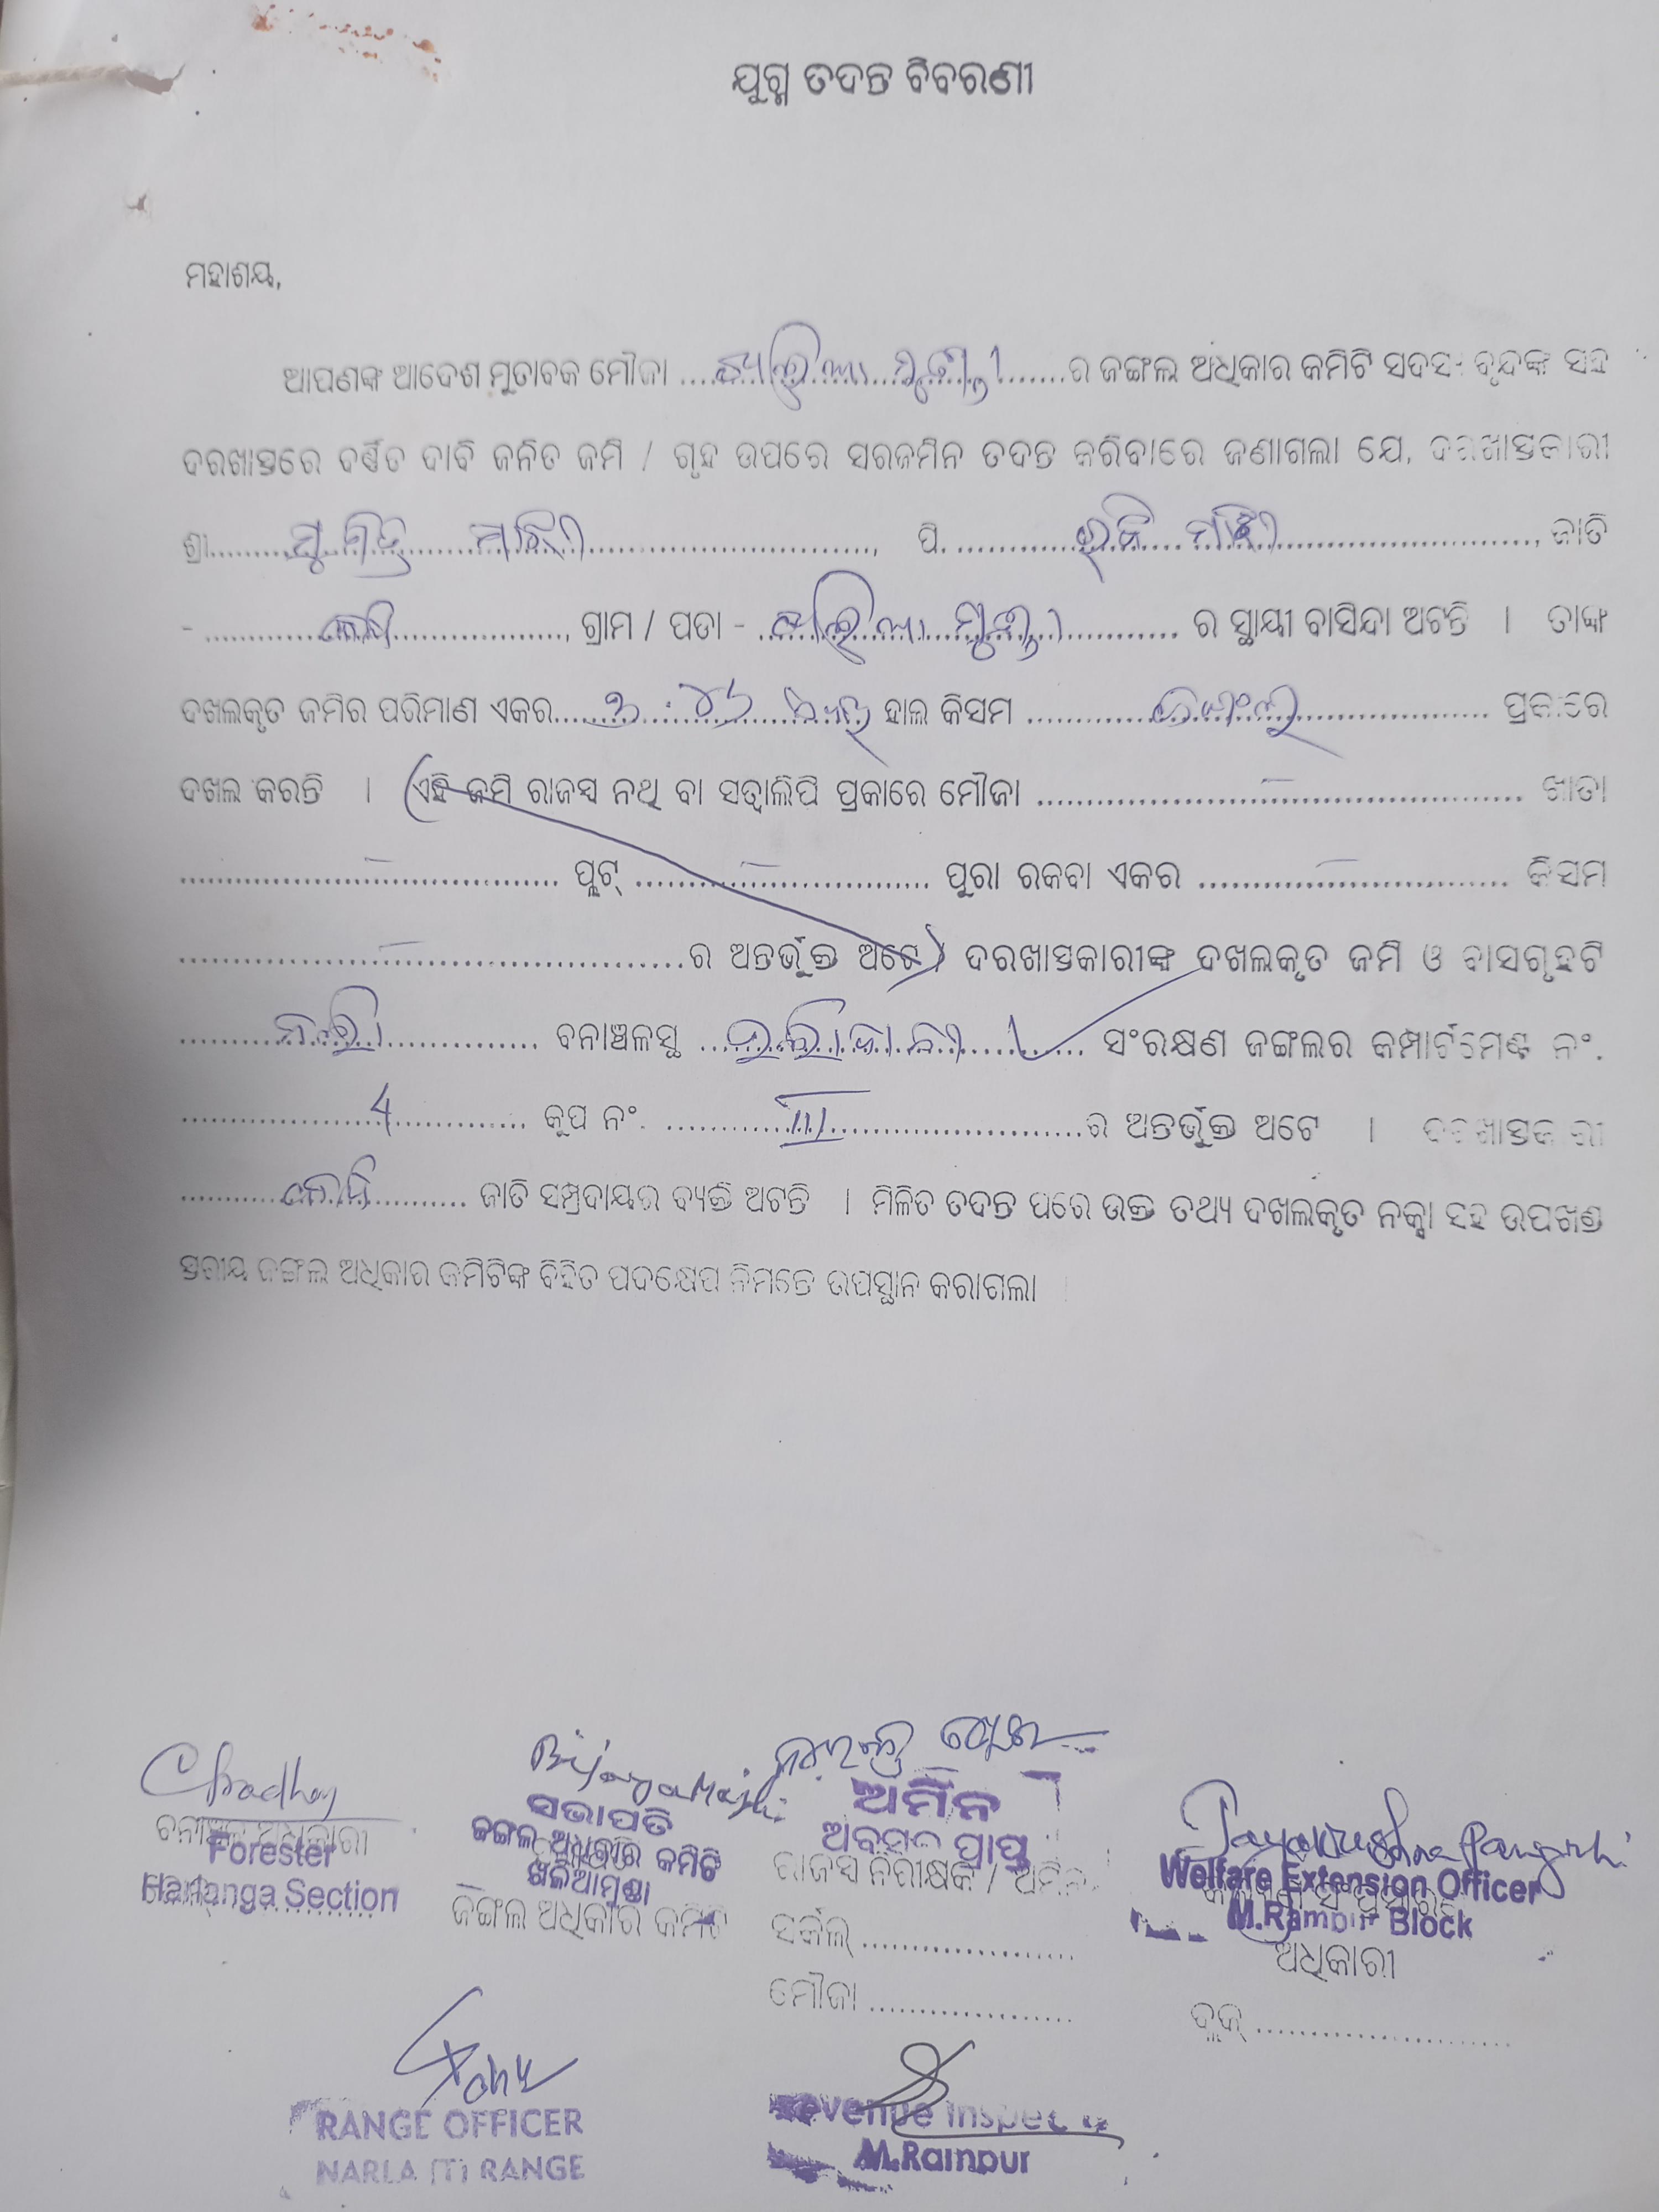 ଯୁଗ୍ମ ତଦନ୍ତ ବିବରଣୀ
ମହାଶୟ,
ଆପଣଙ୍କ ଆଦେଶ ମୁତାବକ ମୌଜା ........ ଖଲିଆମୁଣ୍ଡା ........ର ଜଙ୍ଗଲ ଅଧିକାର କମିଟି ସଦସ୍ୟ ବୃନ୍ଦଙ୍କ ସହ
ଦରଖାସ୍ତରେ ବର୍ଣ୍ଣିତ ଦାବି ଜନିତ ଜମି / ଗୃହ ଉପରେ ସରଜମିନ ତଦନ୍ତ କରିବାରେ ଜଣାଗଲା ଯେ, ଦରଖାସ୍ତକାରୀ
ଶ୍ରୀ........ ମାଝୀ ........, ପି. ........ ମାଝୀ ........, ଜାତି
- ........ କନ୍ଧ ........, ଗ୍ରାମ / ପଡା - ........ ଖଲିଆମୁଣ୍ଡା ........ ର ସ୍ଥାୟୀ ବାସିନ୍ଦା ଅଟନ୍ତି । ତାଙ୍କ
ଦଖଲକୃତ ଜମିର ପରିମାଣ ଏକର........ ହାଲ କିସମ ........ ଜଙ୍ଗଲ ........ ପ୍ରକାରେ
ଦଖଲ କରନ୍ତି । (ଏହି ଜମି ରାଜସ୍ୱ ନଥି ବା ସତ୍ୱାଲିପି ପ୍ରକାରେ ମୌଜା ........ – ........ ଖାତା
........ – ........ ପ୍ଲଟ୍ ........ – ........ ପୁରା ରକବା ଏକର ........ – ........ କିସମ
........ – ........ର ଅନ୍ତର୍ଭୁକ୍ତ ଅଟେ) ଦରଖାସ୍ତକାରୀଙ୍କ ଦଖଲକୃତ ଜମି ଓ ବାସଗୃହଟି
........ ନର୍ଲା ........ ବନାଞ୍ଚଳସ୍ଥ ........ ସଂରକ୍ଷଣ ଜଙ୍ଗଲର କମ୍ପାର୍ଟମେଣ୍ଟ ନଂ.
........ 4 ........ କୁପ ନଂ. ........ III ........ର ଅନ୍ତର୍ଭୁକ୍ତ ଅଟେ । ଦରଖାସ୍ତକାରୀ
........ କନ୍ଧ ........ ଜାତି ସମ୍ପ୍ରଦାୟର ବ୍ୟକ୍ତି ଅଟନ୍ତି । ମିଳିତ ତଦନ୍ତ ପରେ ଉକ୍ତ ତଥ୍ୟ ଦଖଲକୃତ ନକ୍ସା ସହ ଉପଖଣ୍ଡ
ସ୍ତରୀୟ ଜଙ୍ଗଲ ଅଧିକାର କମିଟିଙ୍କ ବିହିତ ପଦକ୍ଷେପ ନିମନ୍ତେ ଉପସ୍ଥାନ କରାଗଲା
Bijaya Majhi
ବନାଞ୍ଚଳ ଅଧିକାରୀ
Forester
Harlanga Section
ସଭାପତି
ଜଙ୍ଗଲ ଅଧିକାର କମିଟି
ଖଲିଆମୁଣ୍ଡା
ଜଙ୍ଗଲ ଅଧିକାର କମିଟି
ଅମିନ
ଅବସର ପ୍ରାପ୍ତ
ରାଜସ୍ୱ ନିରୀକ୍ଷକ / ଅମିନ
ସର୍କଲ୍ ........
ମୌଜା ........
Welfare Extension Officer
M.Rampur Block
ଅଧିକାରୀ
ବ୍ଲକ୍ ........
RANGE OFFICER
NARLA (T) RANGE
Revenue Inspector
M.Rampur